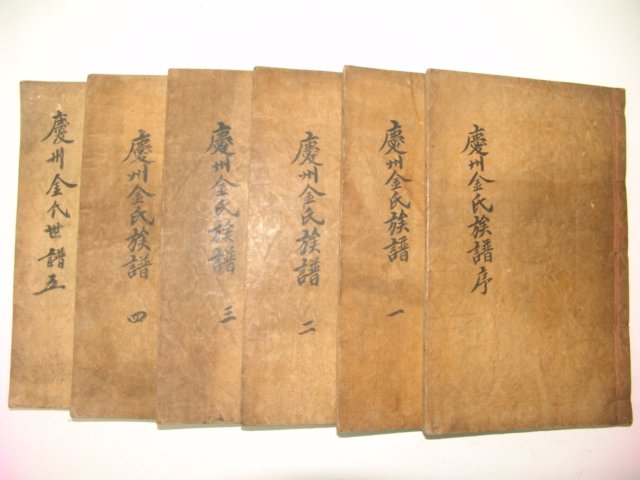 慶州金氏族譜序
慶州金氏族譜 一
慶州金氏族譜 二
慶州金氏族譜 三
慶州金氏族譜 四
慶州金氏世譜 五